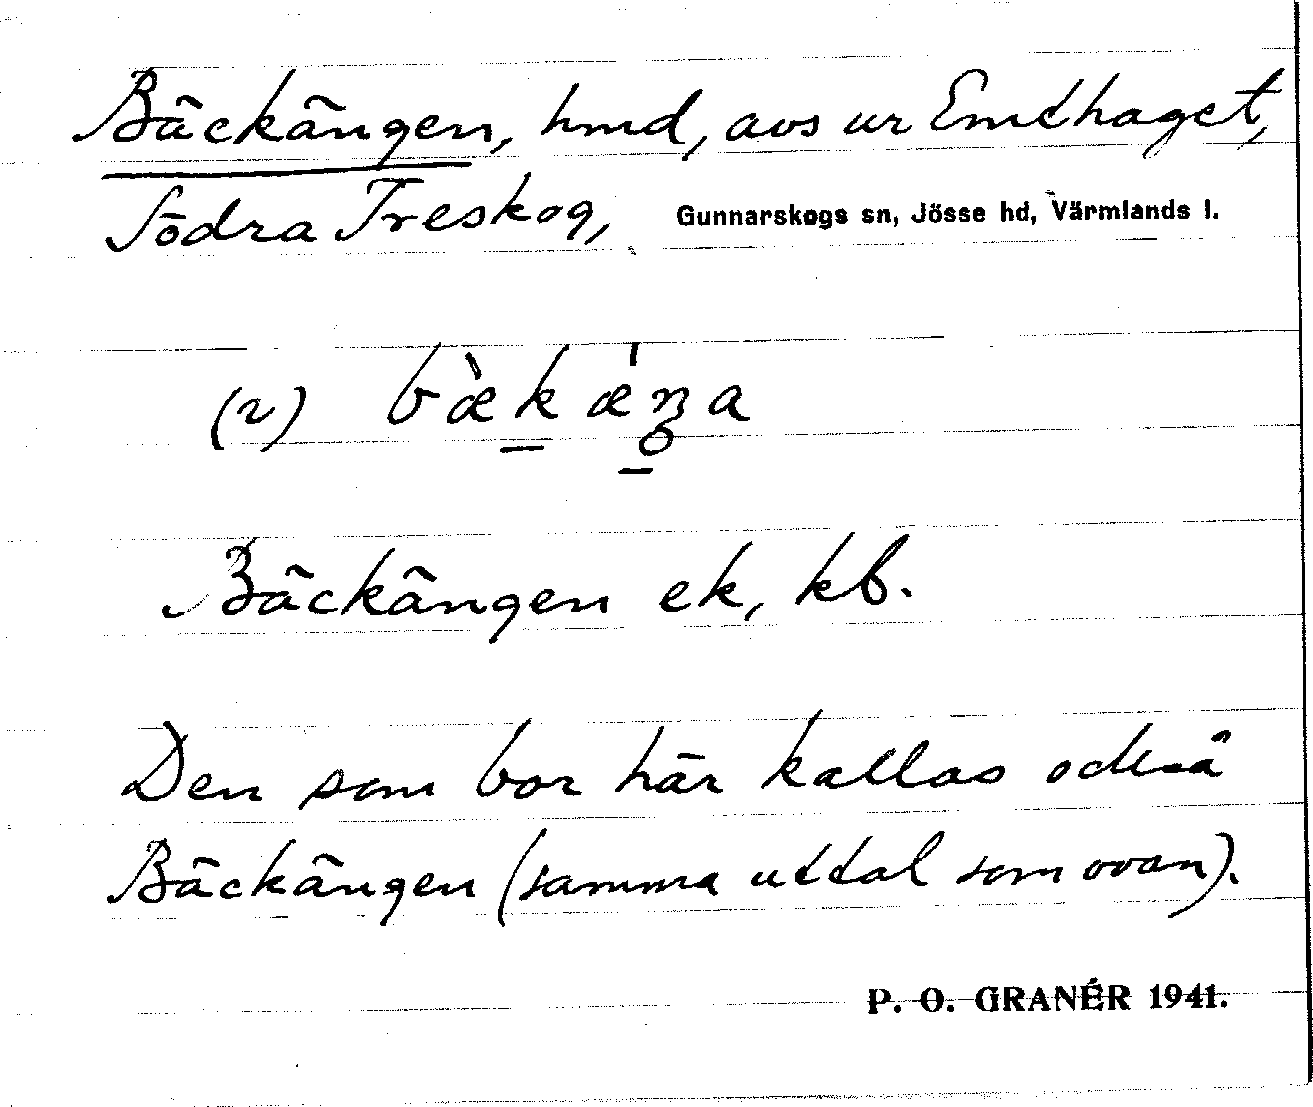 Bäckängen, hmd, avs ur Emthaget,
Södra Treskog, Gunnarskogs sn, Jösse hd, Värmlands l.
(2) bæ̀kǽŋa
Bäckängen ek, kb.
Den som bor här kallas också
Bäckängen (samma uttal som ovan).
P. O. GRANÉR 1941.